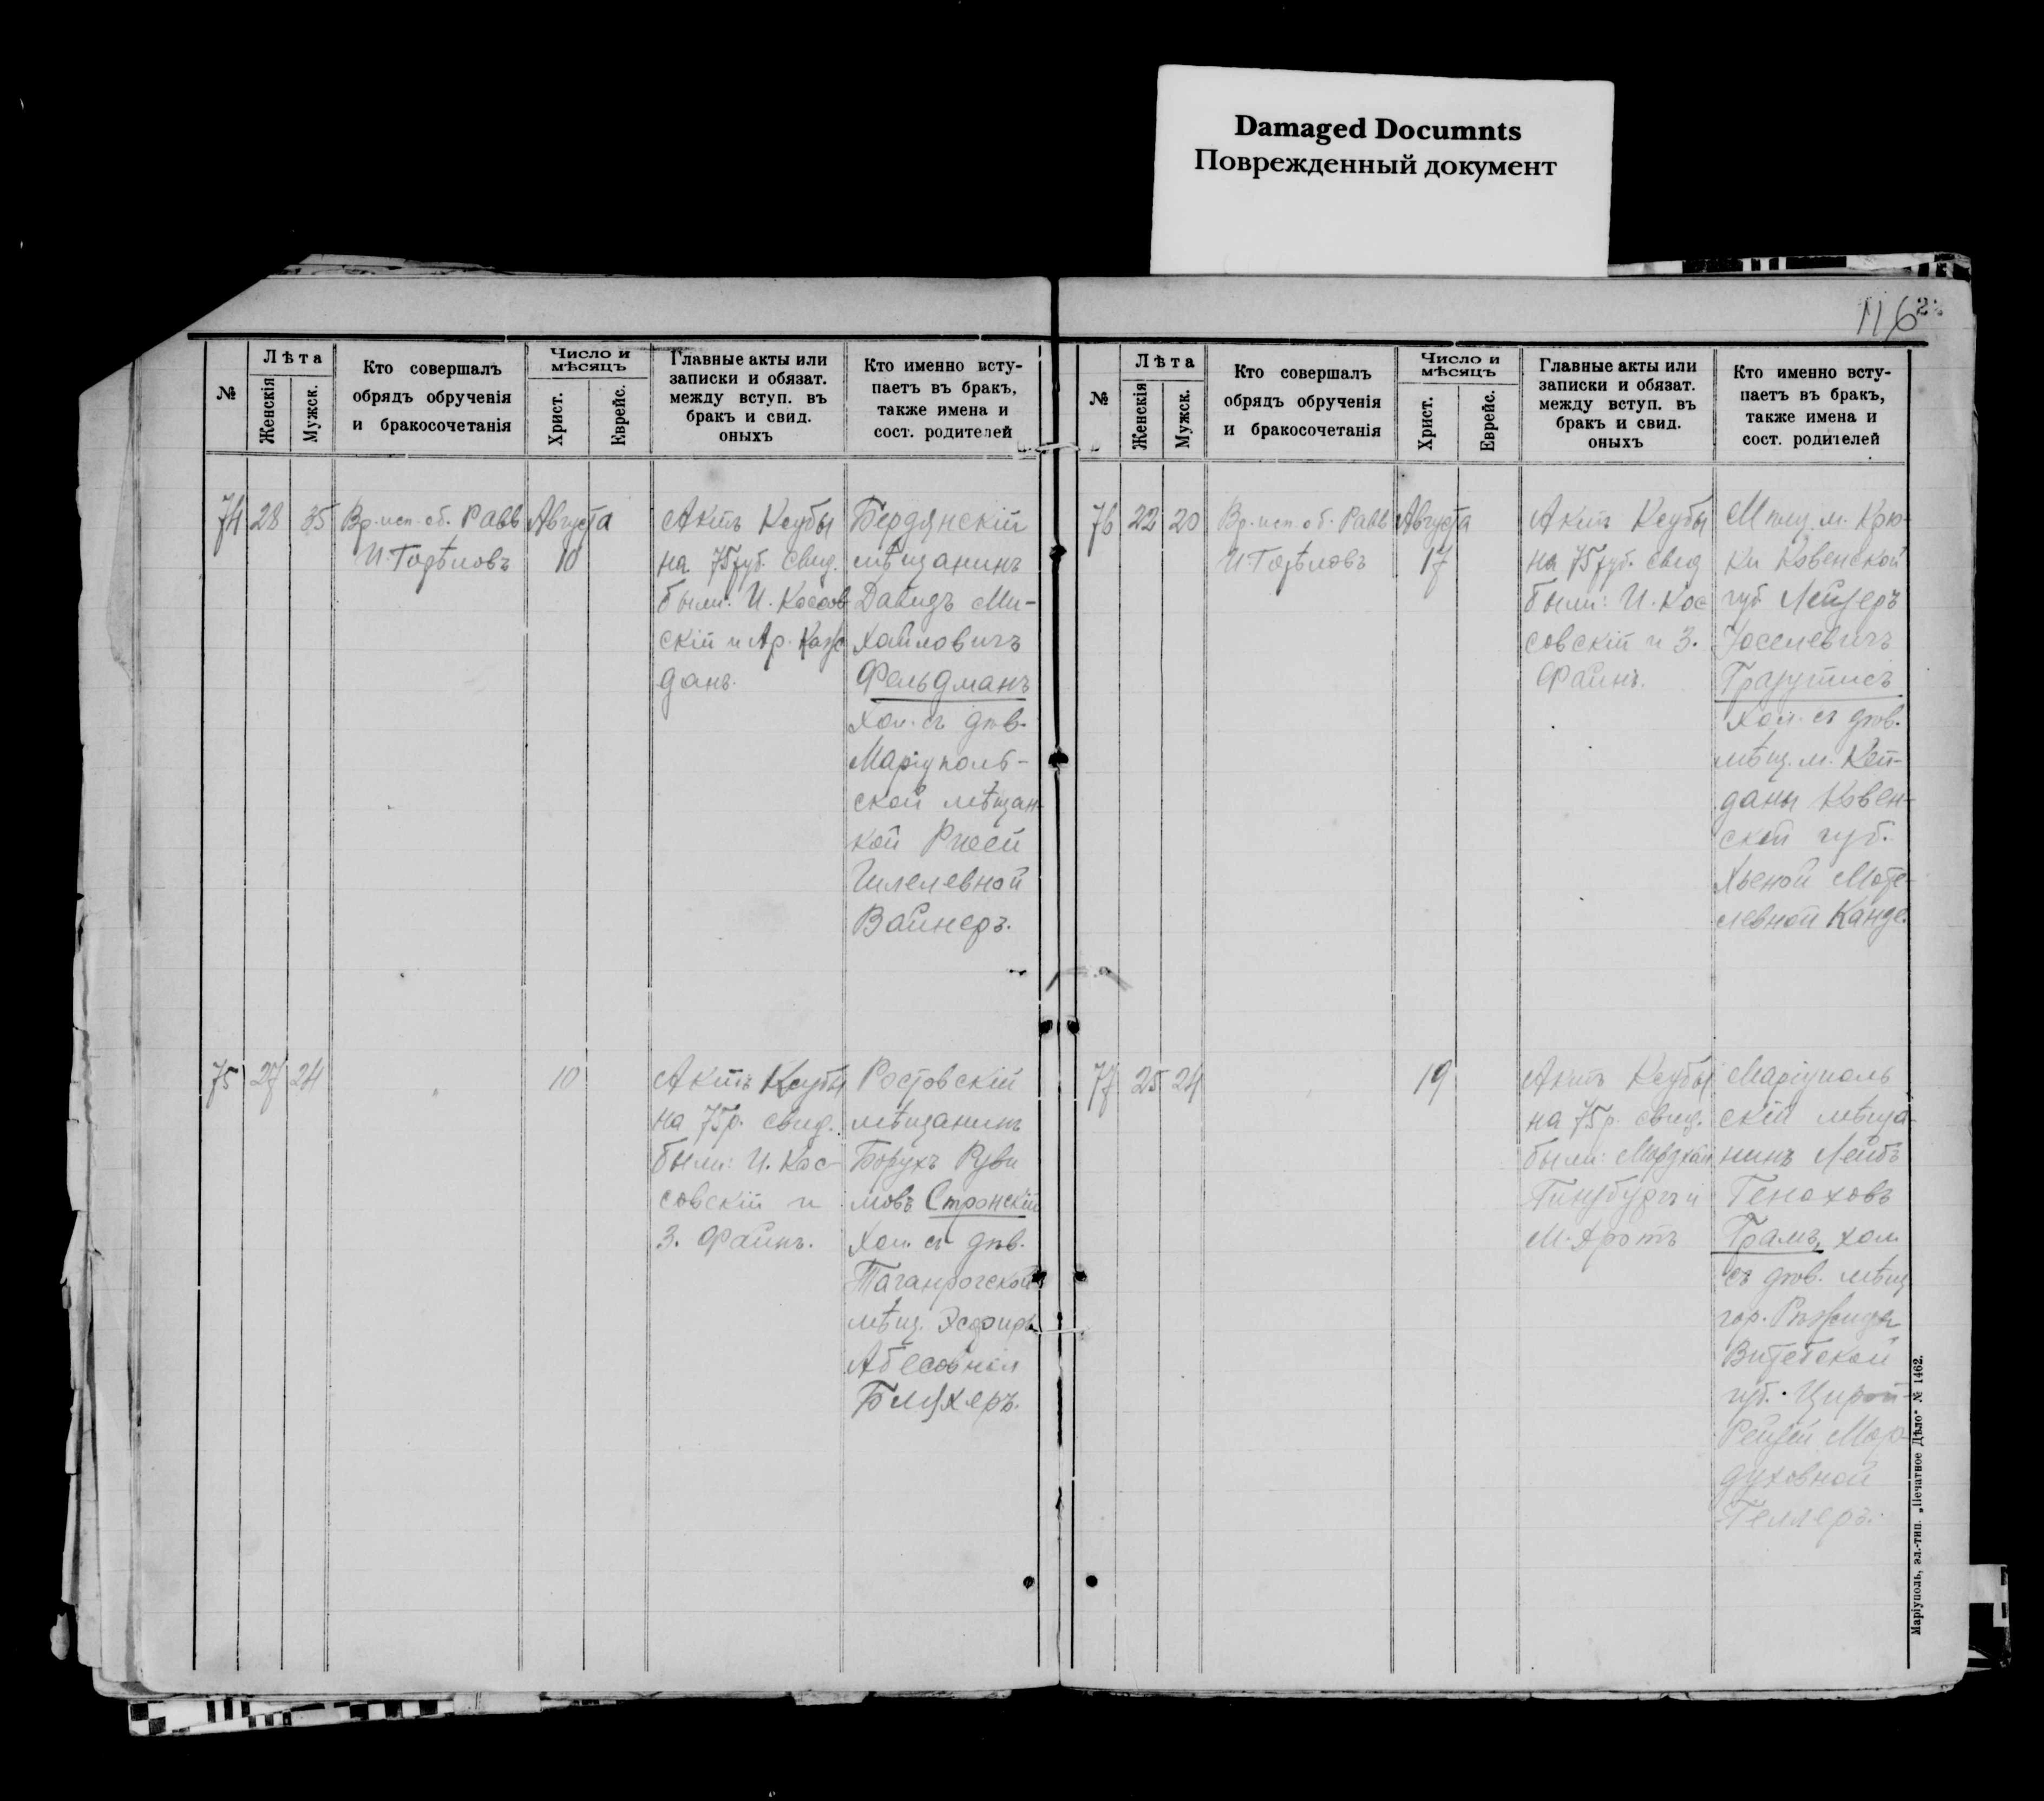 Damaged Documnts
Поврежденный документ
116
№
Лѣта
Женскія
Мужск.
Кто совершалъ
обрядъ обрученія
и бракосочетанія
Число и
мѣсяцъ
Христ.
Еврейс.
Главные акты или
записки и обязат.
между вступ. въ
бракъ и свид.
оныхъ
Кто именно всту-
паетъ въ бракъ,
также имена и
сост. родителей
74 28 35
Вр. исп. об. Равв
И. Годѣловъ
Августа
10
Актъ Ксубы
на 75 руб. Свид.
были: И. Коссов
скій и Ар. Каж
данъ.
Бердянскій
мѣщанинъ
Давидъ Ми-
хайловичъ
Фельдманъ
Хол. съ дѣв.
Маріуполь-
ской мѣщан-
кой Рисей
Шлелевной
Вайнеръ.
75 27 24
10
Актъ Ксубы
на 75 р. свид.
были: И. Кос-
совскій и
З. Файнъ.
Ростовскій
мѣщанинъ
Борухъ Руви
мовъ Стронскій
Хол. съ дѣв.
Таганрогской
мѣщ. Эсфирь
Бліхеръ.
№
Лѣта
Женскія
Мужск.
Кто совершалъ
обрядъ обрученія
и бракосочетанія
Число и
мѣсяцъ
Христ.
Еврейс.
Главные акты или
записки и обязат.
между вступ. въ
бракъ и свид.
оныхъ
Кто именно всту-
паетъ въ бракъ,
также имена и
сост. родителей
76 22 20
Вр. исп. об. Равв
И. Годѣловъ
Августа
17
Актъ Ксубы
на 75 руб. свид
были: И. Кос
совскій и З.
Файнъ.
м. Крю-
ки Ковенской
губ Лейзеръ
Іоселевичъ
Хол. съ дѣв.
мѣщ. м. Кей-
даны Ковен-
ской губ.
Хьеной Моте-
левной
77 25 24
19
Актъ Ксубы
на 75 р. свид.
были: Мордхай
Гинзбургъ и
М. Аротъ
Маріуполь
скій мѣща-
нинъ Лейбъ
Геноховъ
Грамъ, хол.
съ дѣв. мѣщ
гор. Рѣжица
Витебской
губ. Цирой-
Рейзей Мор
духовной
Геллеръ.
Маріуполь, эл.-тип. „Печатное Дѣло" № 1462.